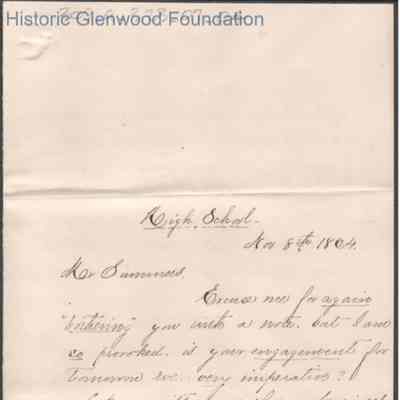 Historic Glenwood Foundation
High School.
Nov 8th 1864.
Mr Summers,
Excuse me for again
"bothering" you with a note, but I am
so provoked. is your engagement for
tomorrow eve. very imperative?